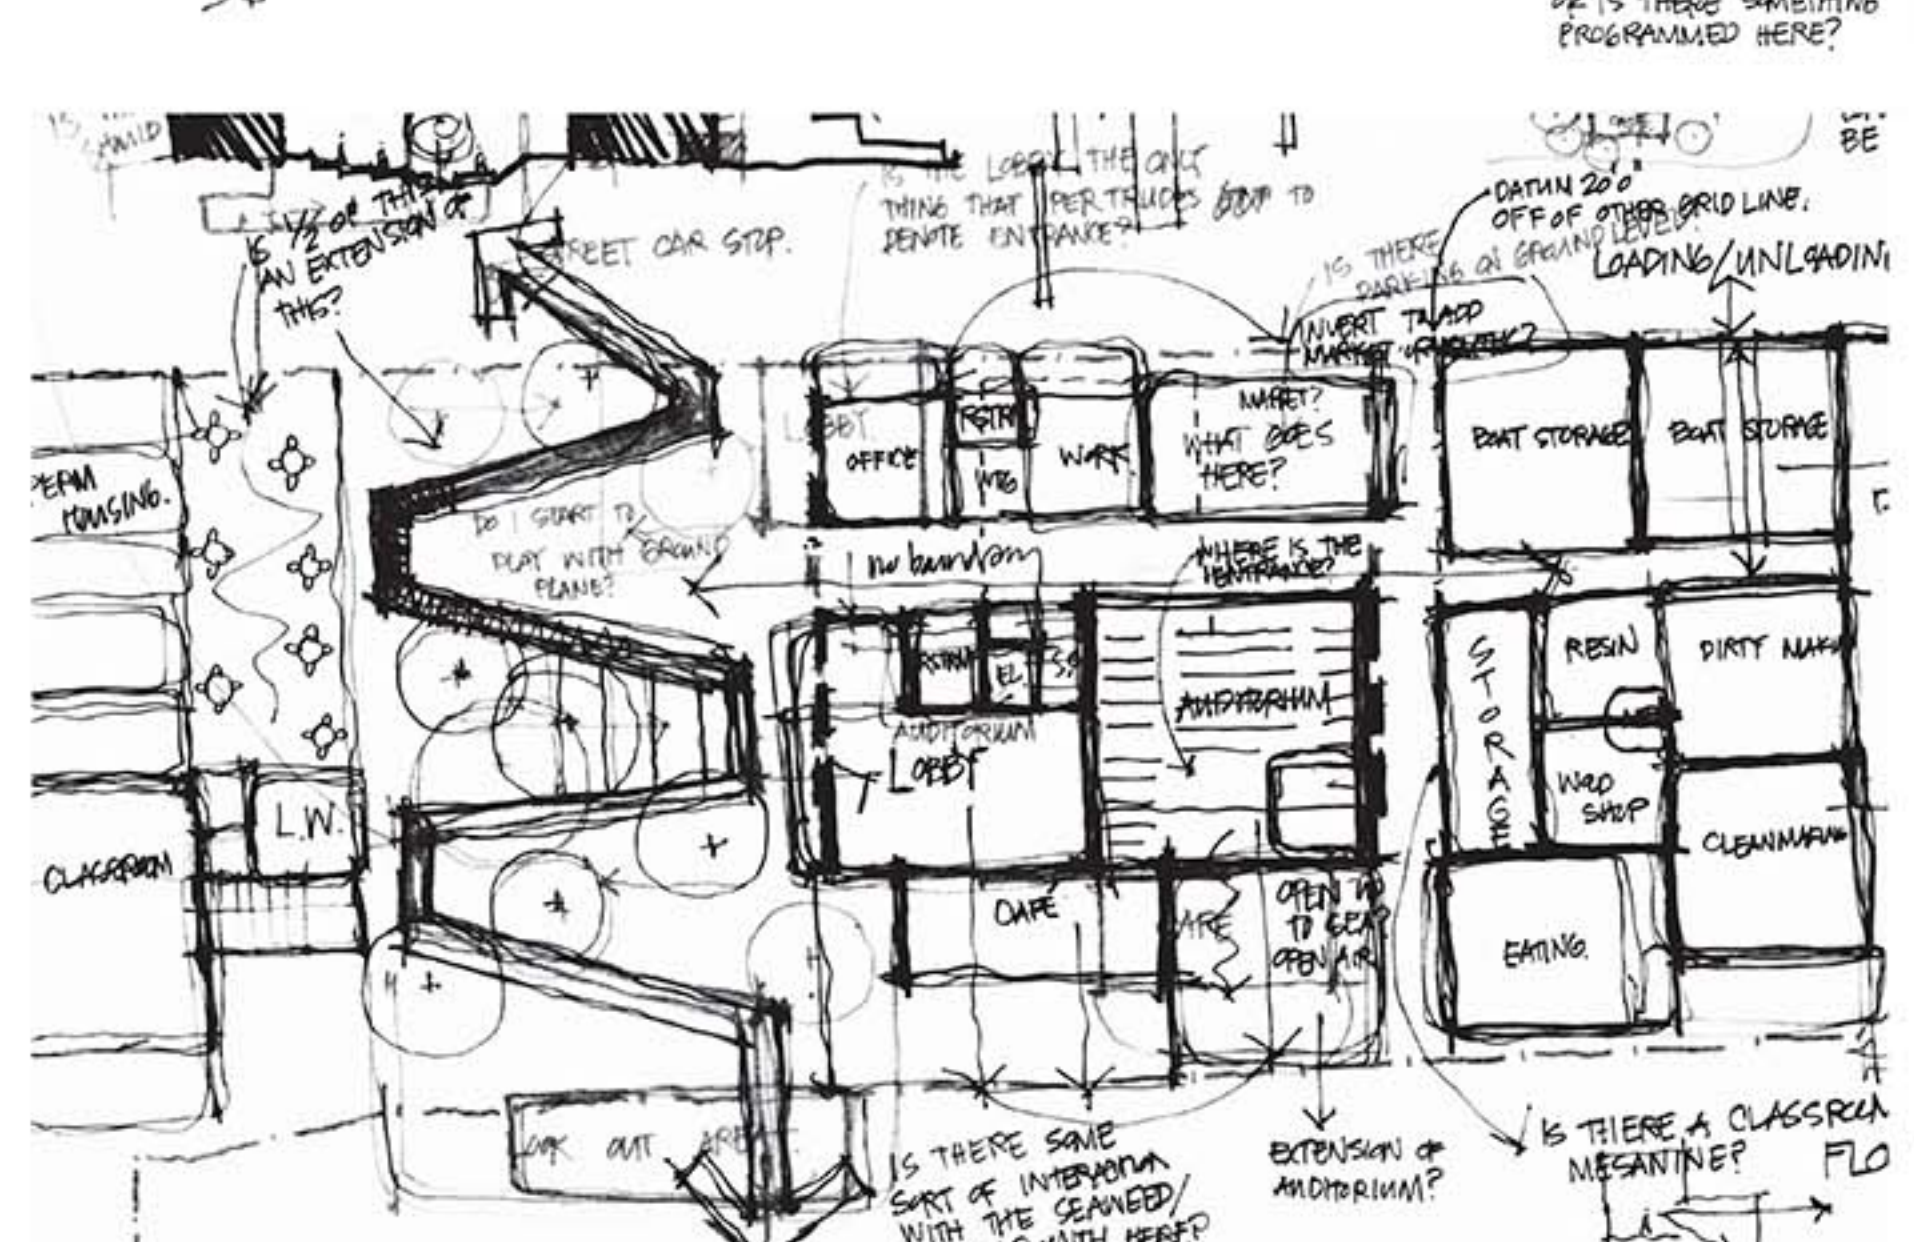 OR IS THERE SOMETHING
PROGRAMMED HERE?
IS
SHOULD
BE
IS 1/2 OF THIS
AN EXTENSION OF
THIS?
STREET CAR STOP.
IS THE LOBBY THE ONLY
THING THAT PERTRUDES OUT TO
DENOTE ENTRANCE?
DATUM 20'0"
OFF OF OTHER GRID LINE.
IS THERE
PARKING ON GROUND LEVEL?
LOADING/UNLOADIN
INVERT TO ADD
MARKET
PERM
HOUSING.
LOBBY
OFFICE
RSTRM
MTG
WORK
MARKET?
WHAT GOES
HERE?
BOAT STORAGE
BOAT STORAGE
DO I START TO
PLAY WITH GROUND
PLANE?
no boundary
WHERE IS THE
ENTRANCE?
RSTRM
EL.
AUDITORIUM
LOBBY
AUDITORIUM
STORAGE
RESIN
WOOD
SHOP
DIRTY MAK
CLEAN MAKING
CLASSROOM
L.W.
CAFE
OPEN TO
TO SEA?
OPEN AIR
EATING.
LOOK OUT AREA
IS THERE SOME
SORT OF INTERACTION
WITH THE SEAWEED/
HERE?
EXTENSION OF
AUDITORIUM?
IS THERE A CLASSROOM
MESANINE?
FLO